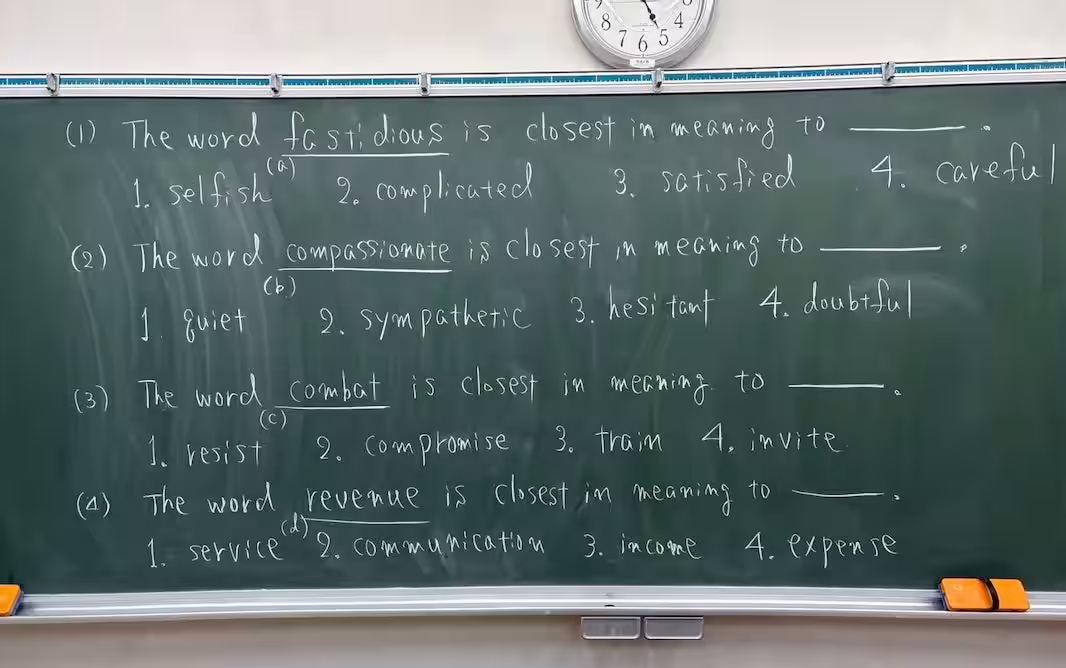 9 8 7 6 5 4 3
(1) The word fastidious is closest in meaning to ______.
(a)
1. selfish 2. complicated 3. satisfied 4. careful
(2) The word compassionate is closest in meaning to ______.
(b)
1. quiet 2. sympathetic 3. hesitant 4. doubtful
(3) The word combat is closest in meaning to ______.
(c)
1. resist 2. compromise 3. train 4. invite
(4) The word revenue is closest in meaning to ______.
(d)
1. service 2. communication 3. income 4. expense